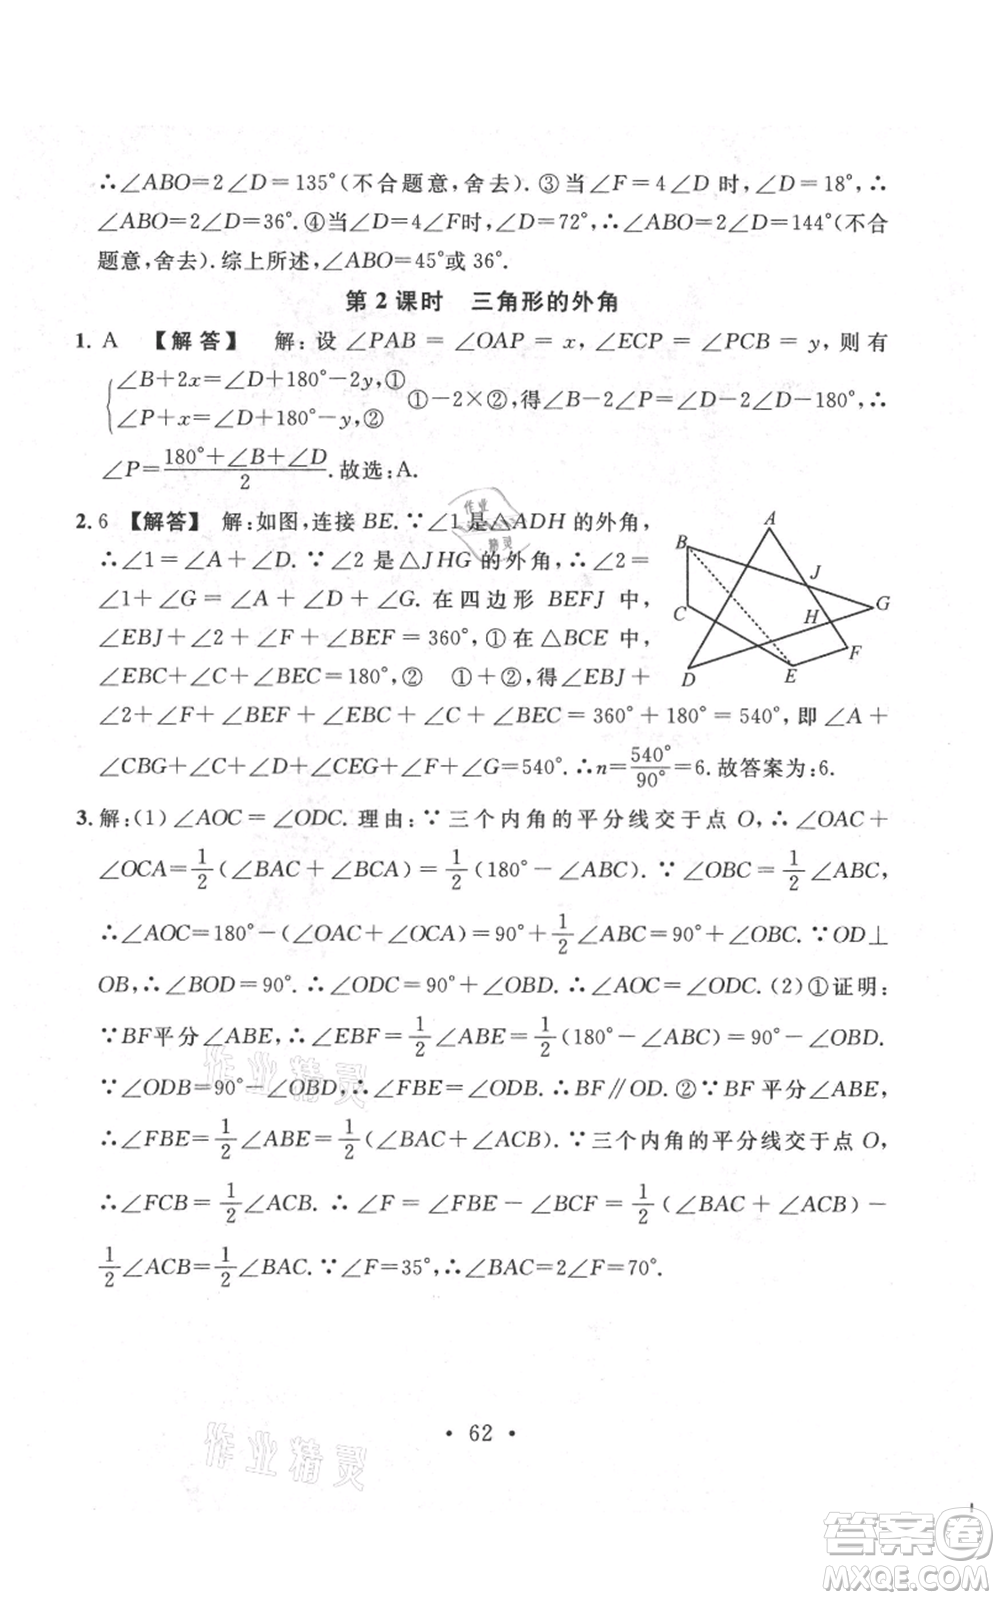 ∴∠ABO=2∠D=135°(不合题意,舍去).③当∠F=4∠D时,∠D=18°,∴
∠ABO=2∠D=36°.④当∠D=4∠F时,∠D=72°,∴∠ABO=2∠D=144°(不合
题意,舍去).综上所述,∠ABO=45°或36°.
第2课时 三角形的外角
1. A 【解答】 解:设∠PAB=∠OAP=x,∠ECP=∠PCB=y,则有
{∠B+2x=∠D+180°-2y,①
∠P+x=∠D+180°-y,② ①-2×②,得∠B-2∠P=∠D-2∠D-180°,∴
∠P=(180°+∠B+∠D)/2.故选:A.
2. 6 【解答】 解:如图,连接BE.∵∠1是△ADH的外角,
∴∠1=∠A+∠D.∵∠2是△JHG的外角,∴∠2=
∠1+∠G=∠A+∠D+∠G.在四边形BEFJ中,
∠EBJ+∠2+∠F+∠BEF=360°,①在△BCE中,
∠EBC+∠C+∠BEC=180°,② ①+②,得∠EBJ+
∠2+∠F+∠BEF+∠EBC+∠C+∠BEC=360°+180°=540°,即∠A+
∠CBG+∠C+∠D+∠E+∠F+∠G=540°.∴n=540°/90°=6.故答案为:6.
A
B
J
C
H
G
F
D
E
3. 解:(1)∠AOC=∠ODC.理由:∵三个内角的平分线交于点O,∴∠OAC+
∠OCA=1/2(∠BAC+∠BCA)=1/2(180°-∠ABC).∵∠OBC=1/2∠ABC,
∴∠AOC=180°-(∠OAC+∠OCA)=90°+1/2∠ABC=90°+∠OBC.∵OD⊥
OB,∴∠BOD=90°.∴∠ODC=90°+∠OBD.∴∠AOC=∠ODC.(2)①证明:
∵BF平分∠ABE,∴∠EBF=1/2∠ABE=1/2(180°-∠ABC)=90°-∠OBD.
∵∠ODB=90°-∠OBD,∴∠FBE=∠ODB.∴BF∥OD.②∵BF平分∠ABE,
∴∠FBE=1/2∠ABE=1/2(∠BAC+∠ACB).∵三个内角的平分线交于点O,
∴∠FCB=1/2∠ACB.∴∠F=∠FBE-∠BCF=1/2(∠BAC+∠ACB)-
1/2∠ACB=1/2∠BAC.∵∠F=35°,∴∠BAC=2∠F=70°.
作业精灵
作业精灵
作业精灵
• 62 •
答案卷
MXQE.COM